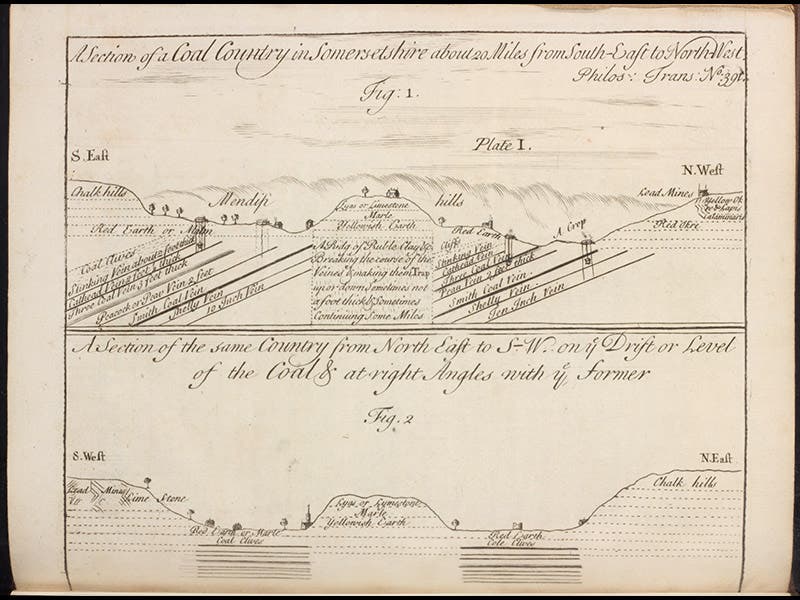 A Section of a Coal Country in Somersetshire about 20 Miles from South-East to North-West.
Philos: Trans: No. 391.
Fig: 1.
Plate I.
S. East
N. West
Chalk hills
Mendip
hills
Lead Mines
Yellow Ok
re & Lapis
Calaminaris
Lyas or Limestone
Marle
Yellowish Earth
Red Earth or Malm
Red Earth
A Crop
Red Okre
Coal Clives
Stinking Vein about 2 foot thick
Cathead Vein 2 feet thick
Three Coal Vein 3 feet thick
Peacock or Peaw Vein 2 feet
Smith Coal Vein
Shelly Vein
10 Inch Vein
A Ridg of Rubble Clay &c
Breaking the course of the
Veines & making them Trap
up or down Sometimes not
a foot thick & Sometimes
Continuing Some Miles
Cliffs
Stinking Vein
Cathead Vein
Three Coal Vein
Peaw Vein 2 feet thick
Smith Coal Vein
Shelly Vein
Ten Inch Vein
A Section of the same Country from North East to S-W. on ye Drift or Level
of the Coal & at right Angles with ye former
Fig. 2
S. West
N. East
Lead Mines
Lime Stone
Chalk hills
Lyas or Lymestone
Marle
Yellowish Earth
Red Earth or Marle
Coal Clives
Red Earth
Cole Clives